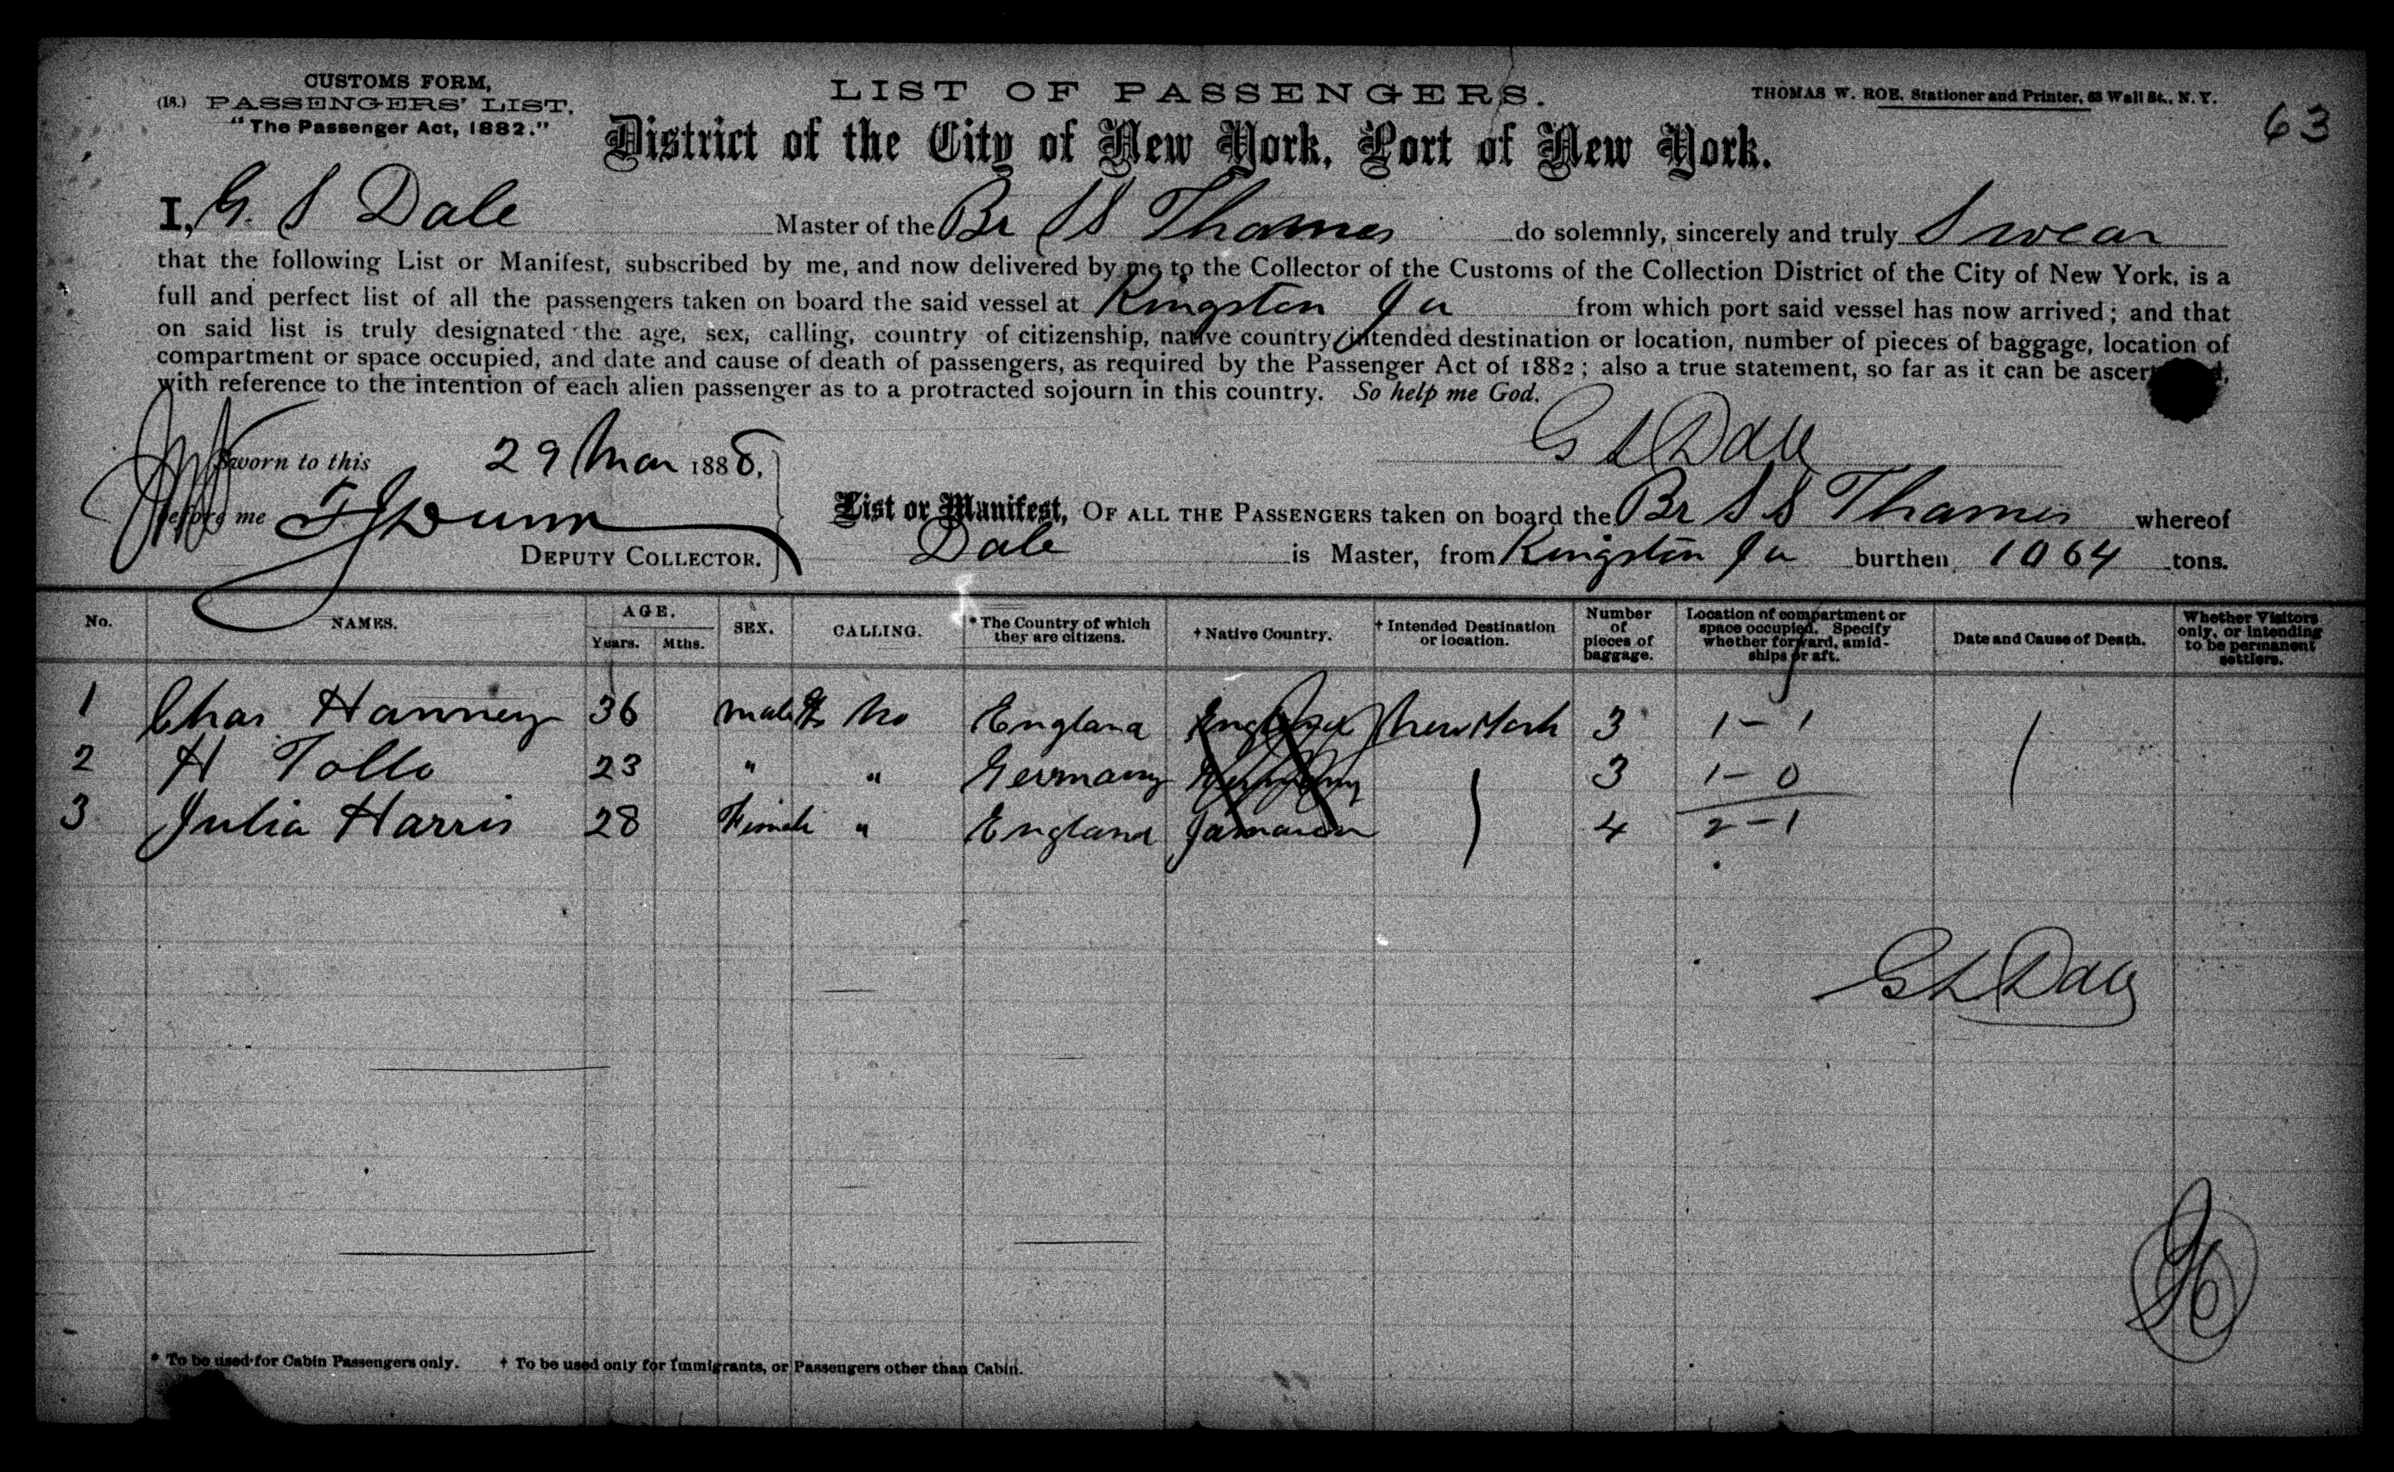 CUSTOMS FORM,
(18.) PASSENGERS' LIST.
"The Passenger Act, 1882."
LIST OF PASSENGERS.
THOMAS W. ROE, Stationer and Printer, 63 Wall St., N. Y.
63
District of the City of New York, Port of New York.
I, G. S Dale Master of the Br SS Thames do solemnly, sincerely and truly Swear
that the following List or Manifest, subscribed by me, and now delivered by me to the Collector of the Customs of the Collection District of the City of New York, is a
full and perfect list of all the passengers taken on board the said vessel at Kingston Ja from which port said vessel has now arrived; and that
on said list is truly designated the age, sex, calling, country of citizenship, native country, intended destination or location, number of pieces of baggage, location of
compartment or space occupied, and date and cause of death of passengers, as required by the Passenger Act of 1882; also a true statement, so far as it can be
with reference to the intention of each alien passenger as to a protracted sojourn in this country. So help me God.
G S Dale
Sworn to this 29 Mar 1888,
before me Dunn
DEPUTY COLLECTOR.
List or Manifest, OF ALL THE PASSENGERS taken on board the Br S S Thames whereof
Dale is Master, from Kingston Ja burthen 1064 tons.
No. NAMES. AGE. Years. Mths. SEX. CALLING. * The Country of which they are citizens. † Native Country. † Intended Destination or location. Number of pieces of baggage. Location of compartment or space occupied. Specify whether forward, amidships or aft. Date and Cause of Death. Whether Visitors only, or intending to be permanent settlers.
1 Chas Hanney 36 Male No England England New York 3 1 - 1
2 H Tollo 23 " " Germany Germany 3 1 - 0
3 Julia Harris 28 Female " England Jamaica 4 2 - 1
G S Dale
* To be used for Cabin Passengers only. † To be used only for Immigrants, or Passengers other than Cabin.